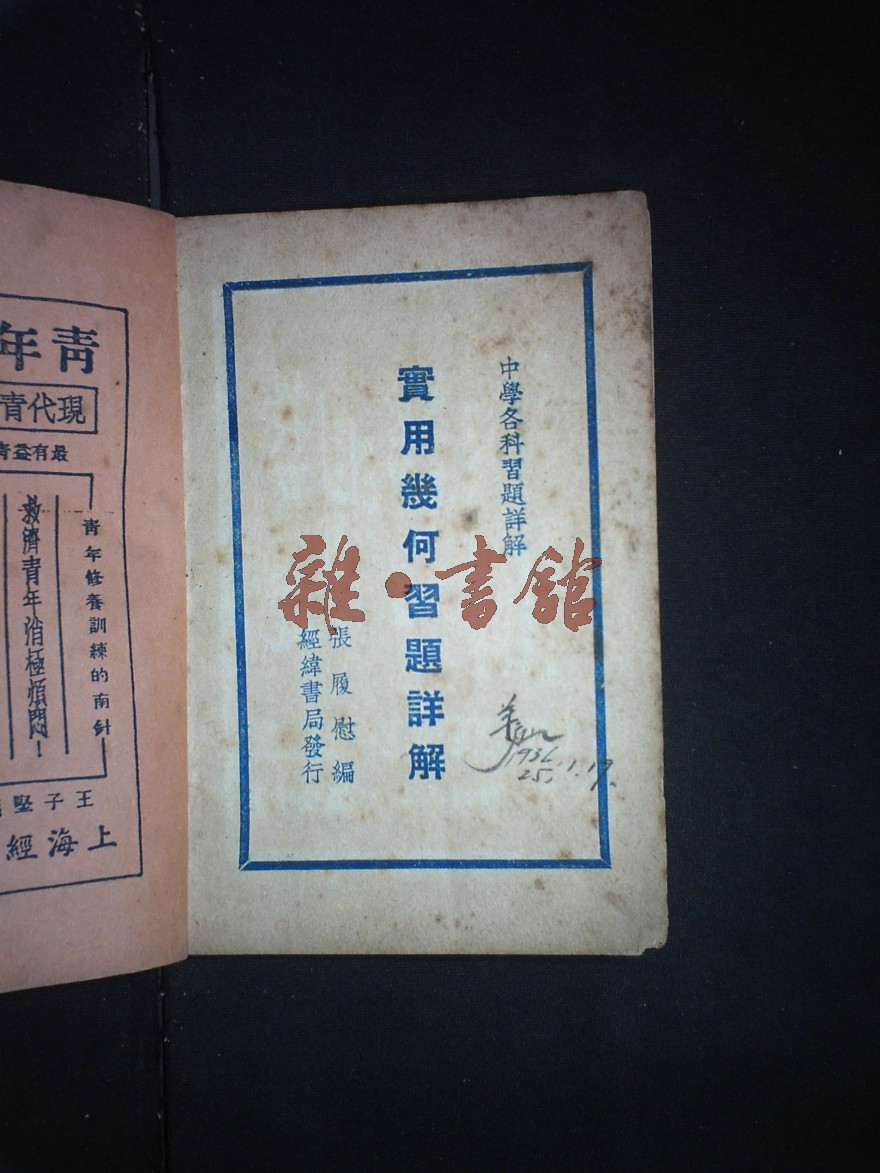 中學各科習題詳解
實用幾何習題詳解
張履慰編
經緯書局發行
1936
25.1.19.
雜·書館
青年
現代青
最有益青
青年修養訓練的南針
救濟青年消極煩悶！
王子堅
上海經